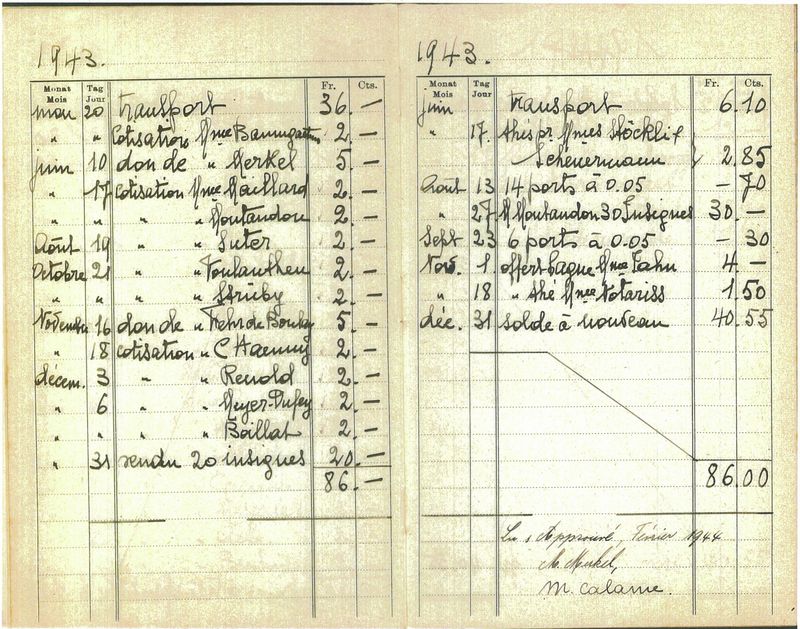 1943.
Monat Mois Tag Jour Fr. Cts.
mai 20 transport 36.—
" " cotisation Mme Baumgartn 2.—
juin 10 don de " Merkel 5.—
" 17 cotisation Mme Maillard 2.—
" " " " Montandon 2.—
Août 19 " " Suter 2.—
Octobre 21 " " Vonlanthen 2.—
" " " " Strüby 2.—
Novembre 16 don de " Fehr de Boulay 5.—
" 18 cotisation " C Haenny 2.—
décem. 3 " " Renold 2.—
" 6 " " Meyer-Dufey 2.—
" " " " Ballat 2.—
" 31 rendu 20 insignes 20.—
86.—
1943.
Monat Mois Tag Jour Fr. Cts.
juin transport 6.10
" 17. thés pr Mmes Stöckli &
Scheuermann 2.85
Août 13 14 ports à 0.05 — 70
" 27 M Montandon 30 Insignes 30.—
Sept 23 6 ports à 0.05 — 30
Nov. 1. offert bague Mme Jahn 4.—
" 18 " thé Mme Notariss 1.50
déc. 31 solde à nouveau 40.55
86.00
Lu & Approuvé, Février 1944
M. Merkel,
M. Calame.